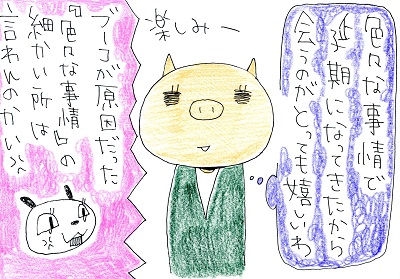 色々な事情で
延期になってきたから
会うのがとっても嬉しいわ
楽しみー
ブーコが原因だった
『色々な事情』の
細かい所は
言わんのかい